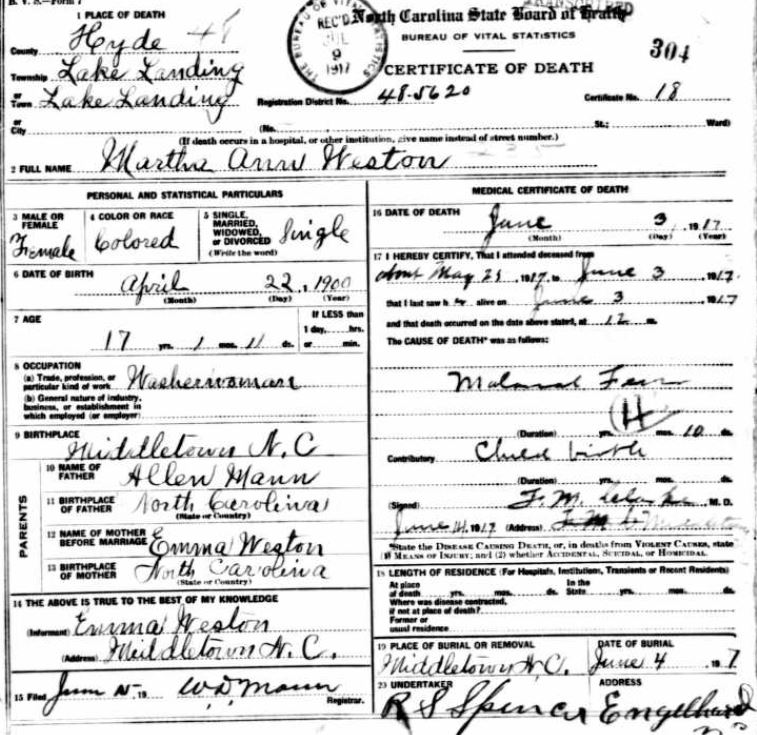 B. V. S.—Form 7
TRANSCRIBED
North Carolina State Board of Health
BUREAU OF VITAL STATISTICS
304
CERTIFICATE OF DEATH
THE BUREAU OF VITAL STATISTICS
REC'D
JUL
9
1917
1 PLACE OF DEATH
County Hyde 48
Township Lake Landing
or
Town Lake Landing
Registration District No. 48-5620 Certificate No. 18
or
City (No. St.; Ward)
(If death occurs in a hospital, or other institution, give name instead of street number.)
2 FULL NAME Martha Ann Weston
PERSONAL AND STATISTICAL PARTICULARS
3 MALE OR FEMALE Female
4 COLOR OR RACE Colored
5 SINGLE, MARRIED, WIDOWED, or DIVORCED Single
(Write the word)
6 DATE OF BIRTH April 22, 1900
(Month) (Day) (Year)
7 AGE 17 yrs. 1 mos. 11 ds.
If LESS than 1 day, hrs. or min.
8 OCCUPATION
(a) Trade, profession, or particular kind of work Washerwoman
(b) General nature of industry, business, or establishment in which employed (or employer)
9 BIRTHPLACE Middletown N.C
PARENTS
10 NAME OF FATHER Allen Mann
11 BIRTHPLACE OF FATHER North Carolina
(State or Country)
12 NAME OF MOTHER BEFORE MARRIAGE Emma Weston
13 BIRTHPLACE OF MOTHER North Carolina
(State or Country)
14 THE ABOVE IS TRUE TO THE BEST OF MY KNOWLEDGE
(Informant) Emma Weston
(Address) Middletown N.C.
15 Filed 19 W.D. Mann
Registrar.
MEDICAL CERTIFICATE OF DEATH
16 DATE OF DEATH June 3, 1917
(Month) (Day) (Year)
17 I HEREBY CERTIFY, That I attended deceased from
about May 25, 1917, to June 3, 1917,
that I last saw h er alive on June 3 1917
and that death occurred on the date above stated, at 12 m.
The CAUSE OF DEATH* was as follows:
Malarial Fever
(4)
(Duration) yrs. mos. 10 ds.
Contributory Child birth
(Duration) yrs. mos. ds.
(Signed) M. D.
June 14, 1917 (Address)
*State the DISEASE CAUSING DEATH, or, in deaths from VIOLENT CAUSES, state
(1) MEANS OF INJURY; and (2) whether ACCIDENTAL, SUICIDAL, or HOMICIDAL.
18 LENGTH OF RESIDENCE (For Hospitals, Institutions, Transients or Recent Residents)
At place of death yrs. mos. ds. In the State yrs. mos. ds.
Where was disease contracted, if not at place of death?
Former or usual residence
19 PLACE OF BURIAL OR REMOVAL Middletown N.C.
DATE OF BURIAL June 4 1917
20 UNDERTAKER R S Spencer
ADDRESS Engelhard